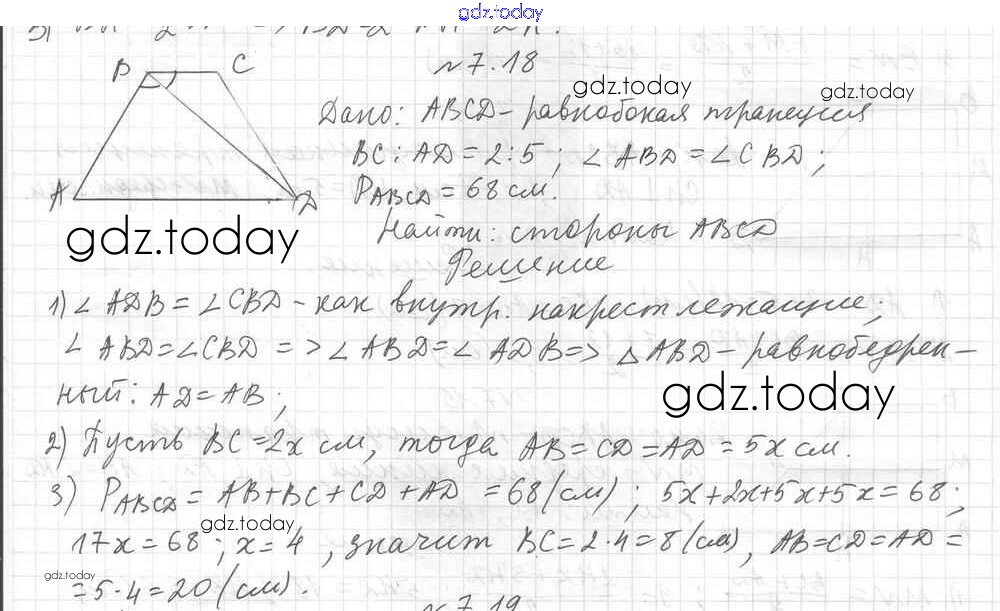 gdz.today
№7.18
B C
A D
Дано: ABCD - равнобокая трапеция
gdz.today gdz.today
BC : AD = 2:5; ∠ABD = ∠CBD;
P ABCD = 68 см.
Найти: стороны ABCD
gdz.today
Решение
1) ∠ADB = ∠CBD - как внутр. накрест лежащие;
∠ABD = ∠CBD => ∠ABD = ∠ADB => △ABD - равнобедрен-
ный: AD = AB;
gdz.today
2) Пусть BC = 2x см, тогда AB = CD = AD = 5x см.
3) P ABCD = AB + BC + CD + AD = 68 (см); 5x + 2x + 5x + 5x = 68;
gdz.today
17x = 68; x = 4, значит BC = 2·4 = 8 (см), AB = CD = AD =
gdz.today
= 5·4 = 20 (см).
№7.19